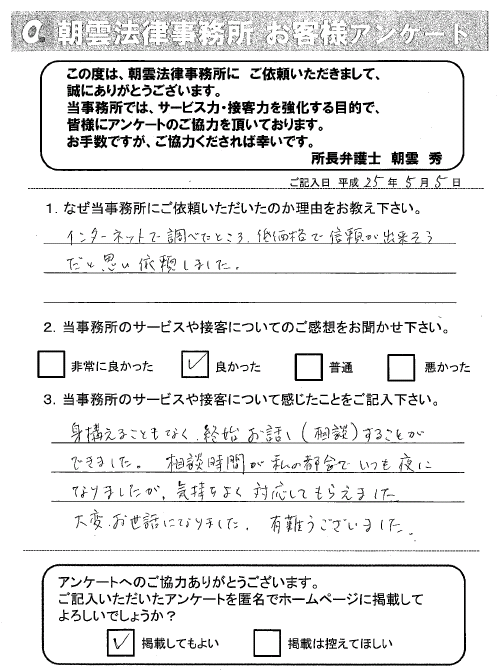 a. 朝雲法律事務所 お客様アンケート
この度は、朝雲法律事務所に ご依頼いただきまして、
誠にありがとうございます。
当事務所では、サービス力・接客力を強化する目的で、
皆様にアンケートのご協力を頂いております。
お手数ですが、ご協力くだされば幸いです。
所長弁護士 朝雲 秀
ご記入日 平成 25 年 5 月 5 日
1. なぜ当事務所にご依頼いただいたのか理由をお教え下さい。
インターネットで調べたところ、低価格で信頼が出来そう
だと思い依頼しました。
2. 当事務所のサービスや接客についてのご感想をお聞かせ下さい。
非常に良かった ✓ 良かった 普通 悪かった
3. 当事務所のサービスや接客について感じたことをご記入下さい。
身構えることもなく、終始お話し(相談)することが
できました。 相談時間が私の都合でいつも夜に
なりましたが、気持ちよく対応してもらえました。
大変、お世話になりました。 有難うございました。
アンケートへのご協力ありがとうございます。
ご記入いただいたアンケートを匿名でホームページに掲載して
よろしいでしょうか?
✓ 掲載してもよい 掲載は控えてほしい